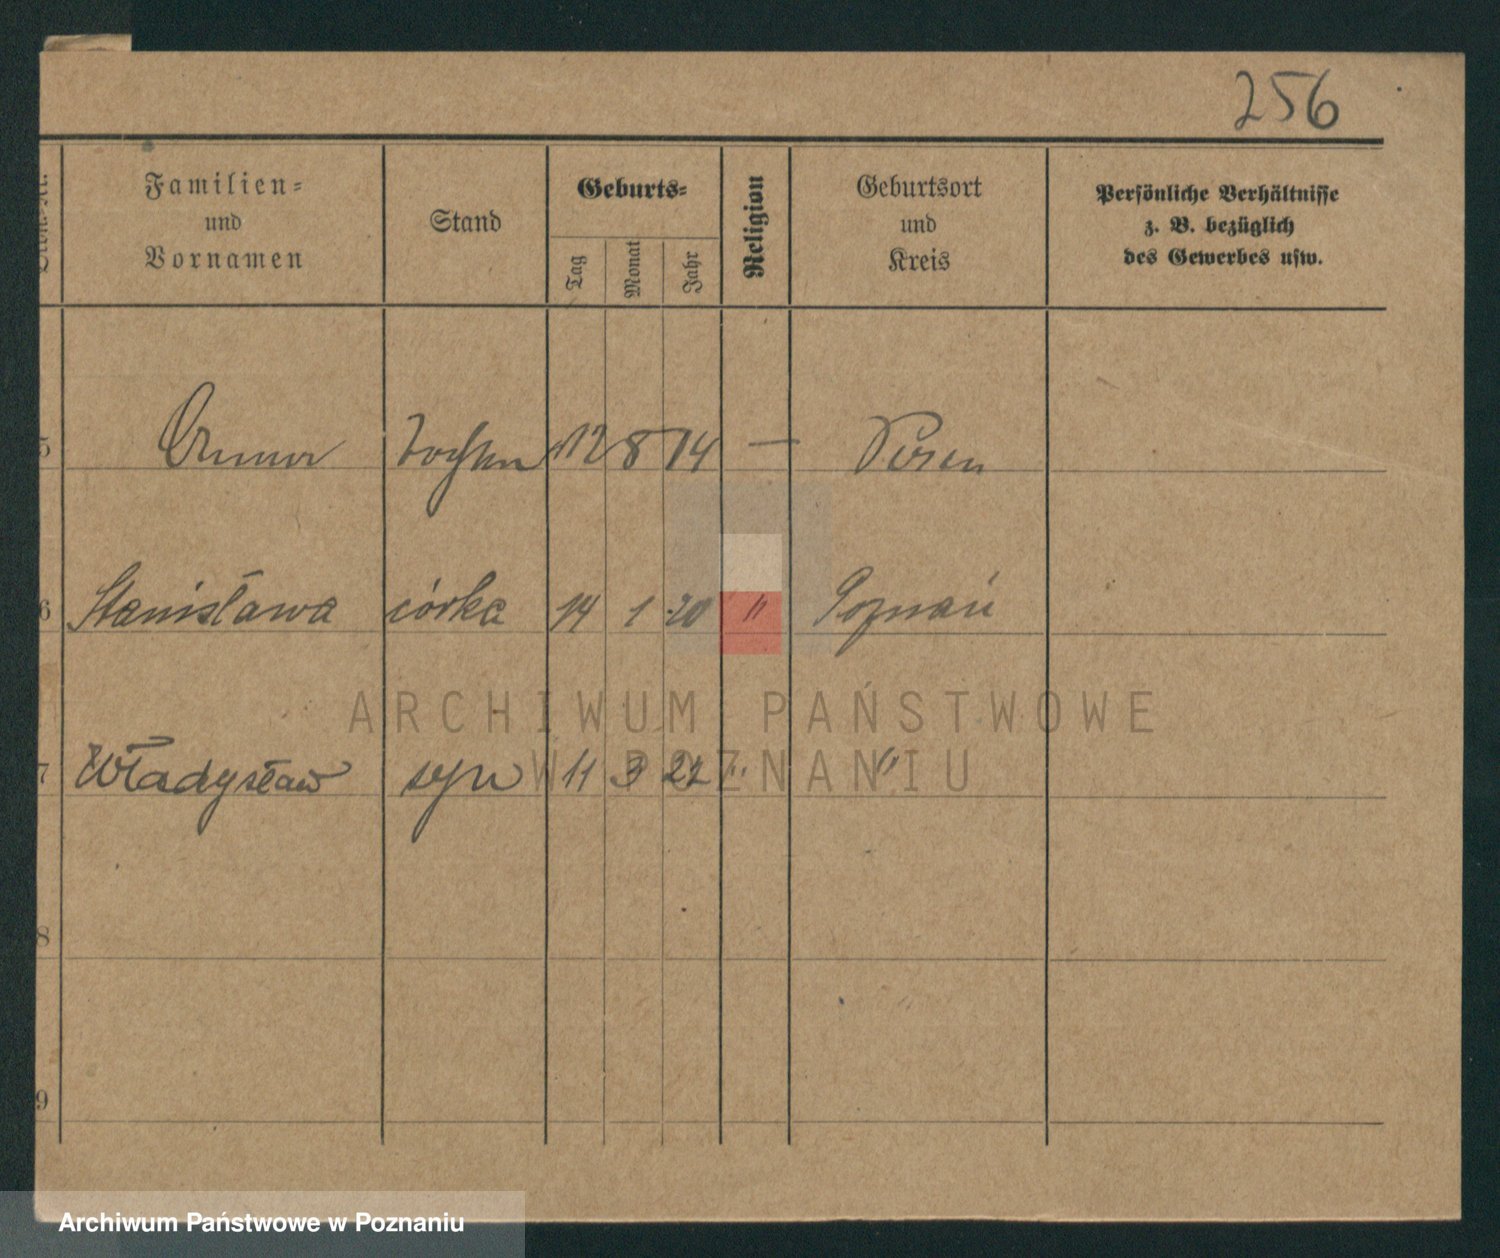 256
Familien=
und
Vornamen
Stand
Geburts=
Tag
Monat
Jahr
Religion
Geburtsort
und
Kreis
Persönliche Verhältnisse
z. B. bezüglich
des Gewerbes usw.
5 12 8 14 — Posen
6 Stanisława córka 14 1 20 " Poznań
7 Władysław syn 11 3 22 " "
8
9
ARCHIWUM PAŃSTWOWE
W POZNANIU
Archiwum Państwowe w Poznaniu